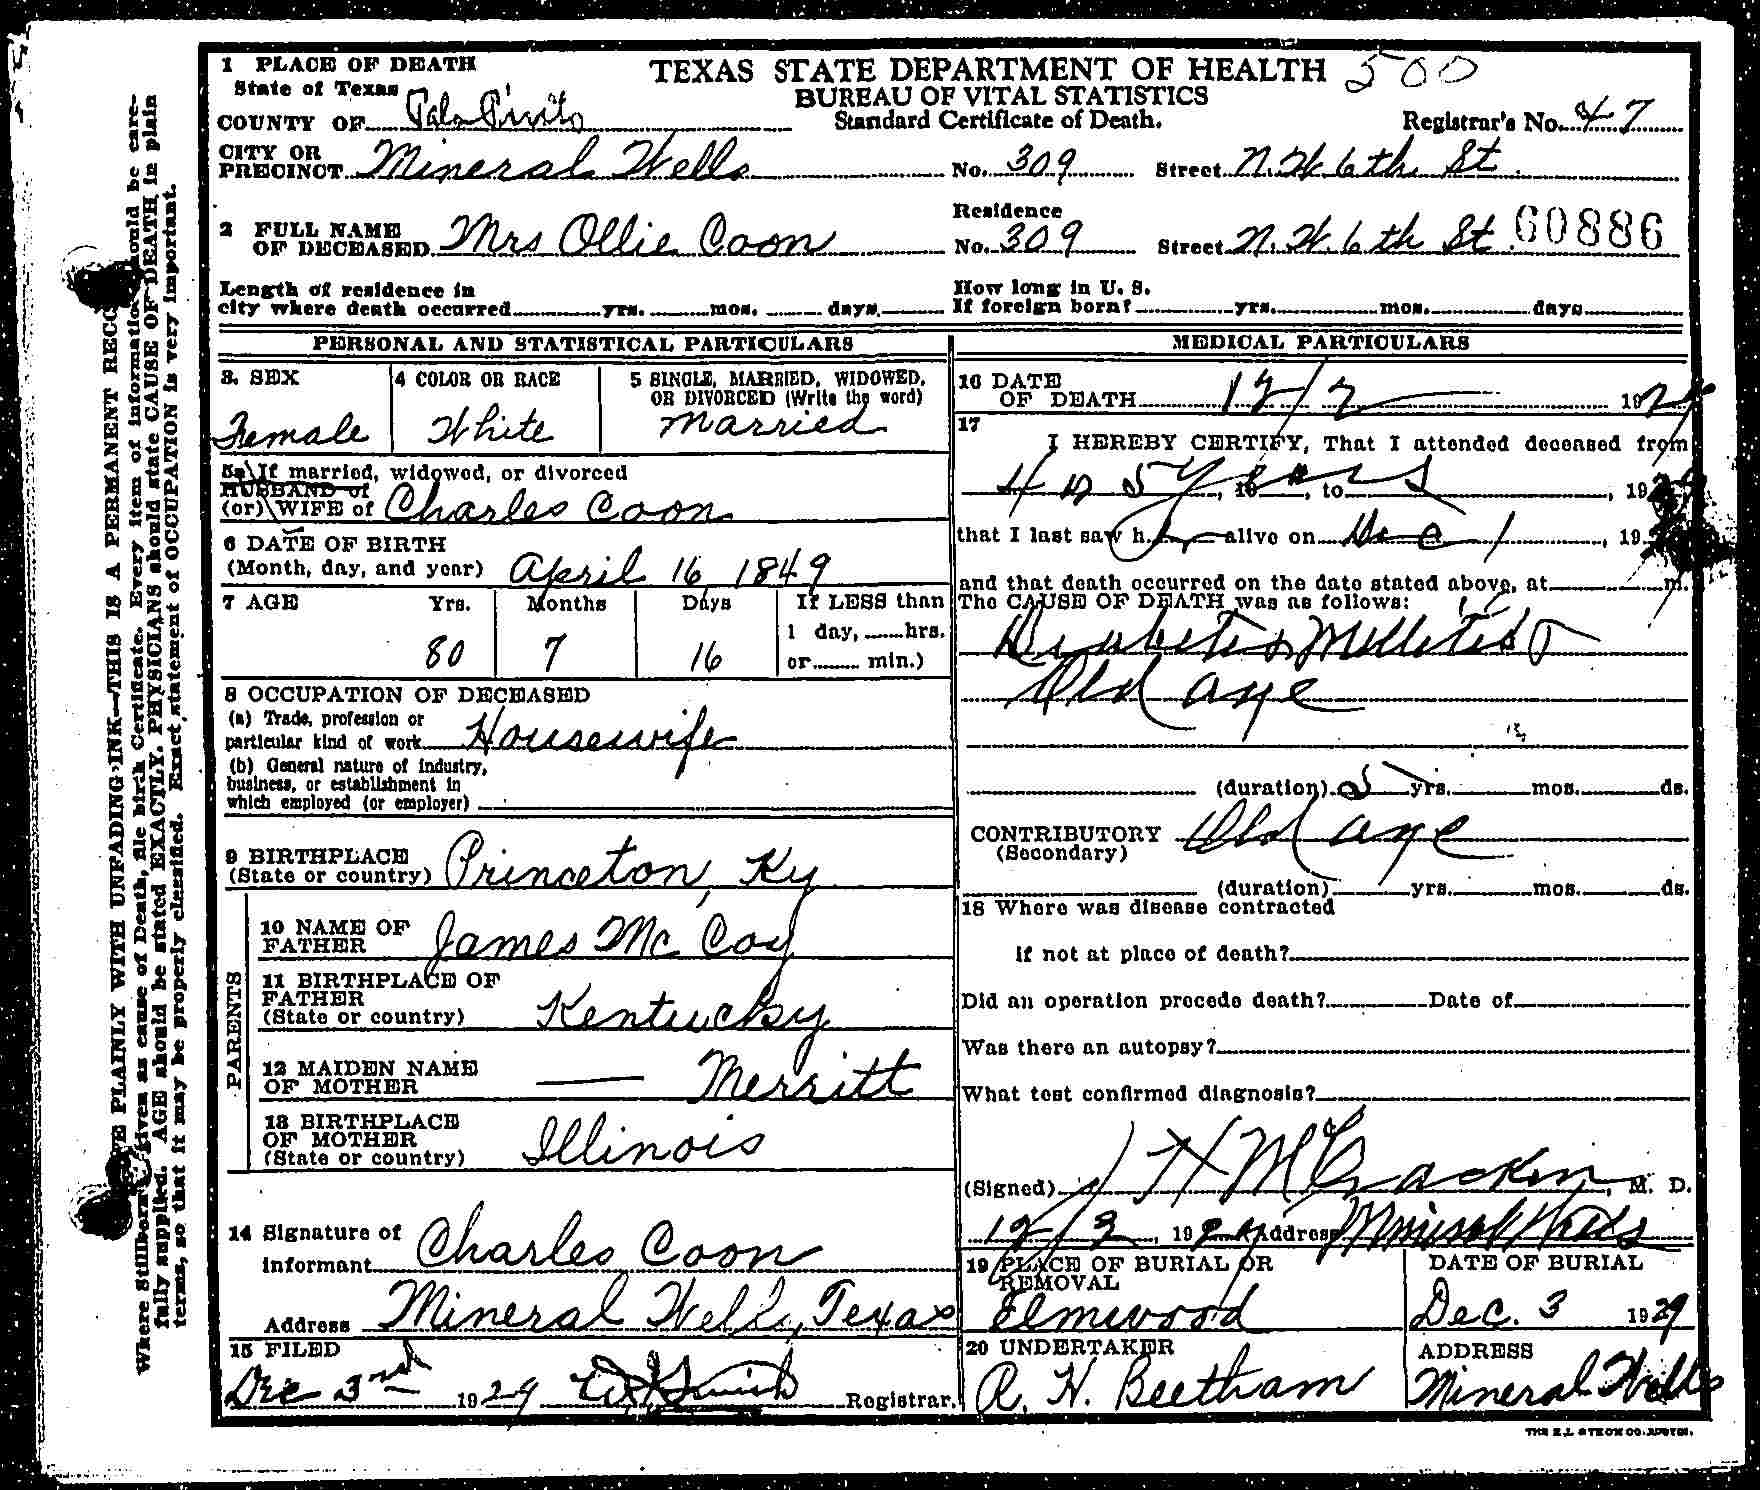 1 PLACE OF DEATH
State of Texas
TEXAS STATE DEPARTMENT OF HEALTH 500
BUREAU OF VITAL STATISTICS
COUNTY OF Palo Pinto
Standard Certificate of Death.
Registrar's No. 47
CITY OR PRECINCT Mineral Wells No. 309 Street N.W. 6th St.
2 FULL NAME OF DECEASED Mrs Ollie Coon
Residence
No. 309 Street N.W. 6th St. 60886
Length of residence in
city where death occurred yrs. mos. days.
How long in U. S.
If foreign born? yrs. mos. days
PERSONAL AND STATISTICAL PARTICULARS
3. SEX
Female
4 COLOR OR RACE
White
5 SINGLE, MARRIED, WIDOWED,
OR DIVORCED (Write the word)
Married
5a If married, widowed, or divorced
HUSBAND of
(or) WIFE of Charles Coon
6 DATE OF BIRTH
(Month, day, and year) April 16 1849
7 AGE Yrs. Months Days If LESS than
1 day, hrs.
80 7 16 or min.)
8 OCCUPATION OF DECEASED
(a) Trade, profession or
particular kind of work Housewife
(b) General nature of industry,
business, or establishment in
which employed (or employer)
9 BIRTHPLACE
(State or country) Princeton, Ky
PARENTS
10 NAME OF
FATHER James McCoy
11 BIRTHPLACE OF
FATHER
(State or country) Kentucky
12 MAIDEN NAME
OF MOTHER — Merritt
13 BIRTHPLACE
OF MOTHER
(State or country) Illinois
14 Signature of
Informant Charles Coon
Address Mineral Wells, Texas
15 FILED
Dec 3rd 1929 Registrar.
MEDICAL PARTICULARS
16 DATE
OF DEATH 12/2 1929
17
I HEREBY CERTIFY, That I attended deceased from
4 or 5 years, 19, to, 1929
that I last saw her alive on Dec 1, 192
and that death occurred on the date stated above, at m.
The CAUSE OF DEATH was as follows:
Diabetis Mellitis &
Old age
(duration) 5 yrs. mos. ds.
CONTRIBUTORY Old age
(Secondary)
(duration) yrs. mos. ds.
18 Where was disease contracted
if not at place of death?
Did an operation precede death? Date of
Was there an autopsy?
What test confirmed diagnosis?
(Signed) J H McCracken, M. D.
12/3, 1929 Address Mineral Wells
19 PLACE OF BURIAL OR
REMOVAL
Elmwood
DATE OF BURIAL
Dec. 3 1929
20 UNDERTAKER
R. H. Beetham
ADDRESS
Mineral Wells
THE E.L. STECK CO. AUSTIN.
PLAINLY WITH UNFADING INK—THIS IS A PERMANENT
Where Stillborn given as cause of Death, file birth Certificate. Every item of information should be care-
fully supplied. AGE should be stated EXACTLY. PHYSICIANS should state CAUSE OF DEATH in plain
terms, so that it may be properly classified. Exact statement of OCCUPATION is very important.